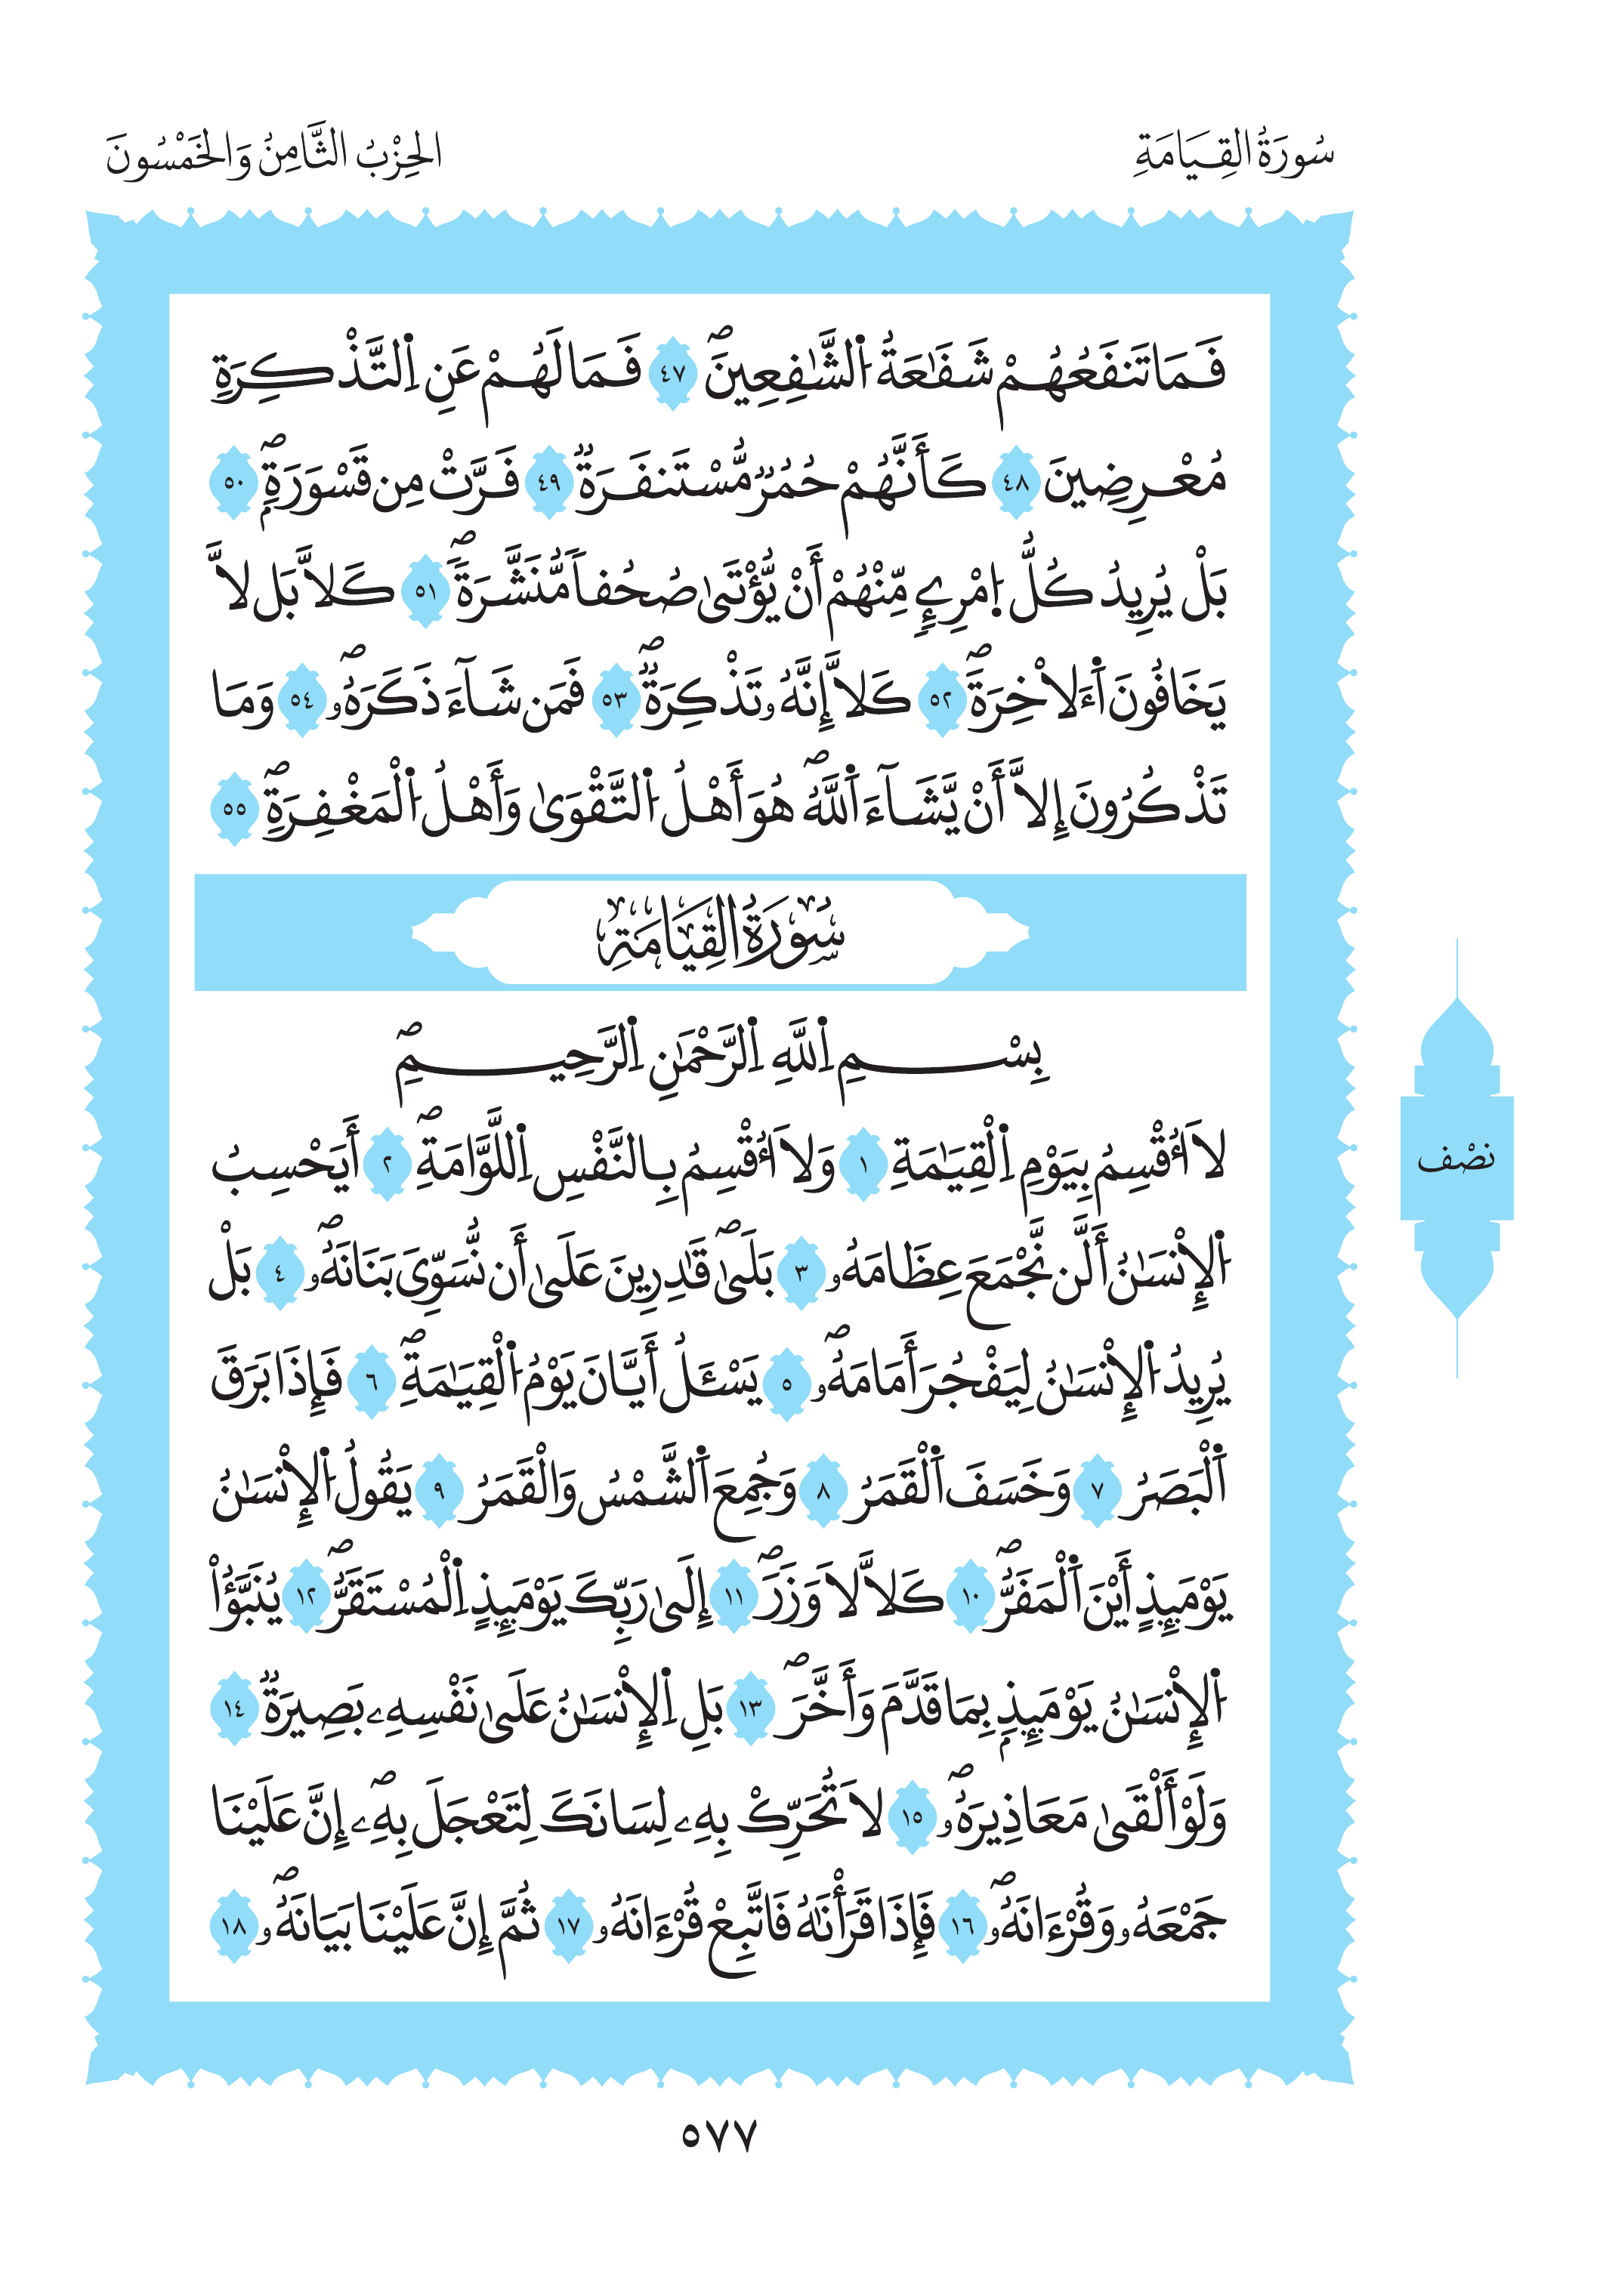 سُورَةُ القِيَامَةِ
الحِزْبُ الثَّامِنُ وَالخَمْسُونَ
فَمَا تَنفَعُهُمْ شَفَٰعَةُ اُ۬لشَّٰفِعِينَۖ ٤٧ فَمَا لَهُمْ عَنِ اِ۬لتَّذْكِرَةِ
مُعْرِضِينَ ٤٨ كَأَنَّهُمْ حُمُرٞ مُّسْتَنفَرَةٞ ٤٩ فَرَّتْ مِن قَسْوَرَةِۢۖ ٥٠
بَلْ يُرِيدُ كُلُّ اُ۪مْرِےٕٖ مِّنْهُمْ أَنْ يُّؤْتَىٰ صُحُفاٗ مُّنَشَّرَةٗۖ ٥١ كَلاَّ بَل لاَّ
يَخَافُونَ اَ۬ءَلاْخِرَةَۖ ٥٢ كَلاَّ إِنَّهُۥ تَذْكِرَةٞۖ ٥٣ فَمَن شَآءَ ذَكَرَهُۥۖ ٥٤ وَمَا
تَذْكُرُونَ إِلاَّ أَنْ يَّشَآءَ اَ۬للَّهُۖ هُوَ أَهْلُ اُ۬لتَّقْوَىٰ وَأَهْلُ اُ۬لْمَغْفِرَةِۖ ٥٥
سُورَةُ القِيَامَةِ
بِسْمِ اِ۬للَّهِ اِ۬لرَّحْمَٰنِ اِ۬لرَّحِيمِۖ
لَآ أُقْسِمُ بِيَوْمِ اِ۬لْقِيَٰمَةِ ١ وَلَآ أُقْسِمُ بِالنَّفْسِ اِ۬للَّوَّامَةِۖ ٢ أَيَحْسِبُ
اُ۬لِانْسَٰنُ أَلَّن نَّجْمَعَ عِظَامَهُۥ ٣ بَلَىٰۖ قَٰدِرِينَ عَلَىٰ أَن نُّسَوِّيَ بَنَانَهُۥۖ ٤ بَلْ
يُرِيدُ اُ۬لِانْسَٰنُ لِيَفْجُرَ أَمَامَهُۥۖ ٥ يَسْـَٔلُ أَيَّانَ يَوْمُ اُ۬لْقِيَٰمَةِۖ ٦ فَإِذَا بَرَقَ
اَ۬لْبَصَرُ ٧ وَخَسَفَ اَ۬لْقَمَرُ ٨ وَجُمِعَ اَ۬لشَّمْسُ وَالْقَمَرُ ٩ يَقُولُ اُ۬لِانْسَٰنُ
يَوْمَئِذٍ أَيْنَ اَ۬لْمَفَرُّۖ ١٠ كَلاَّ لَا وَزَرَۖ ١١ إِلَىٰ رَبِّكَ يَوْمَئِذٍ اِ۬لْمُسْتَقَرُّۖ ١٢ يُنَبَّؤُاْ
اُ۬لِانْسَٰنُ يَوْمَئِذِۢ بِمَا قَدَّمَ وَأَخَّرَۖ ١٣ بَلِ اِ۬لِانْسَٰنُ عَلَىٰ نَفْسِهِۦ بَصِيرَةٞ ١٤
وَلَوْ أَلْقَىٰ مَعَاذِيرَهُۥۖ ١٥ لَا تُحَرِّكْ بِهِۦ لِسَانَكَ لِتَعْجَلَ بِهِۦۖ إِنَّ عَلَيْنَا
جَمْعَهُۥ وَقُرْءَانَهُۥۖ ١٦ فَإِذَا قَرَأْنَٰهُ فَاتَّبِعْ قُرْءَانَهُۥ ١٧ ثُمَّ إِنَّ عَلَيْنَا بَيَانَهُۥۖ ١٨
نصْف
٥٧٧